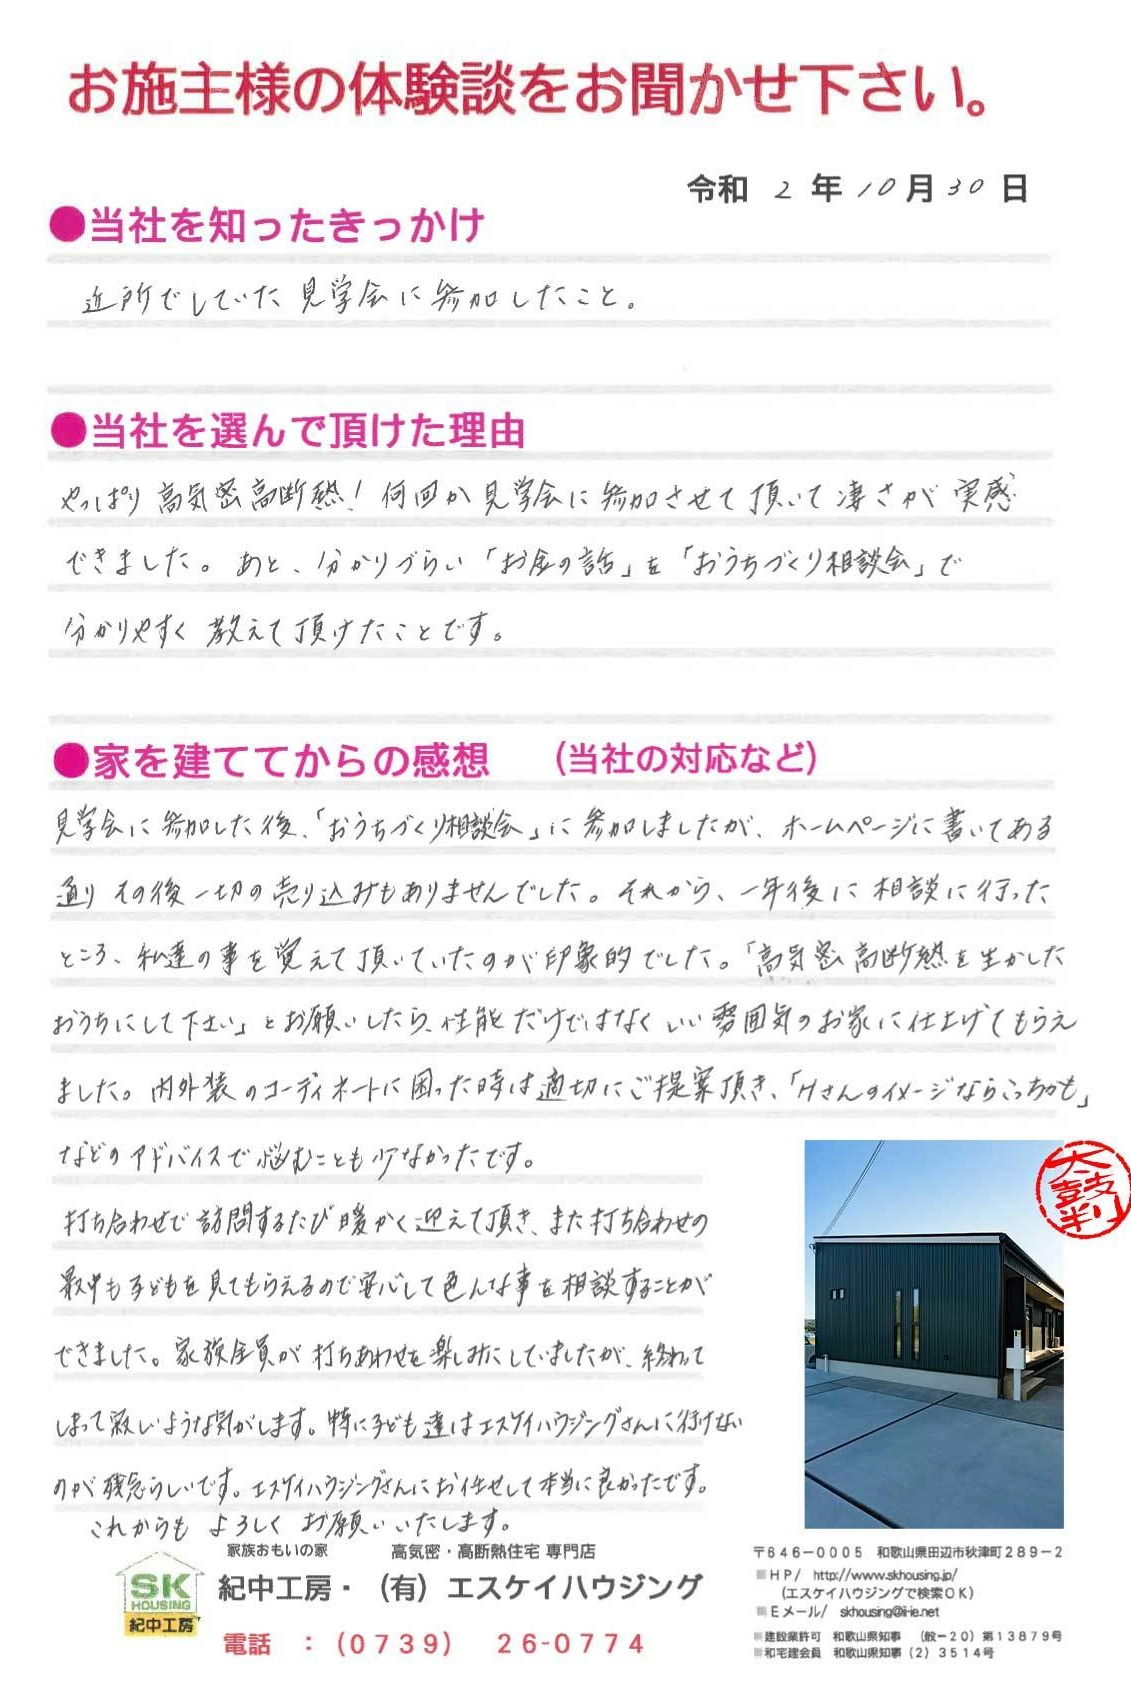 お施主様の体験談をお聞かせ下さい。
令和 2 年 10 月 30 日
●当社を知ったきっかけ
近所でしていた見学会に参加したこと。
●当社を選んで頂けた理由
やっぱり高気密高断熱！何回か見学会に参加させて頂いて凄さが実感
できました。あと、分かりづらい「お金の話」を「おうちづくり相談会」で
分かりやすく教えて頂けたことです。
●家を建ててからの感想　（当社の対応など）
見学会に参加した後、「おうちづくり相談会」に参加しましたが、ホームページに書いてある
通りその後一切の売り込みもありませんでした。それから、一年後に相談に行った
ところ、私達の事を覚えて頂いていたのが印象的でした。「高気密高断熱を生かした
おうちにして下さい」とお願いしたら、性能だけではなくいい雰囲気のお家に仕上げてもらえ
ました。内外装のコーディネートに困った時は適切にご提案頂き、「Hさんのイメージならこっちかも」
などのアドバイスで悩むことも少なかったです。
打ち合わせで訪問するたび暖かく迎えて頂き、また打ち合わせの
最中も子どもを見てもらえるので安心して色んな事を相談することが
できました。家族全員が打ちあわせを楽しみにしていましたが、終わって
しまって寂しいような気がします。特に子ども達はエスケイハウジングさんに行けない
のが残念らしいです。エスケイハウジングさんにお任せして本当に良かったです。
これからもよろしくお願いいたします。
太鼓判
SK
HOUSING
紀中工房
家族おもいの家　高気密・高断熱住宅 専門店
紀中工房・（有）エスケイハウジング
電話　：（０７３９）　２６-０７７４
〒６４６－０００５　和歌山県田辺市秋津町２８９－２
■ＨＰ/　http://www.skhousing.jp/
（エスケイハウジングで検索ＯＫ）
■Ｅメール/　skhousing@i-ie.net
■建設業許可　和歌山県知事　（般－20）第１３８７９号
■和宅建会員　和歌山県知事（２）３５１４号